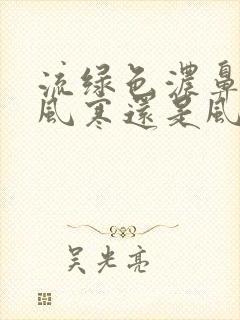 流绿色浓鼻
風寒還是風
吴光亮